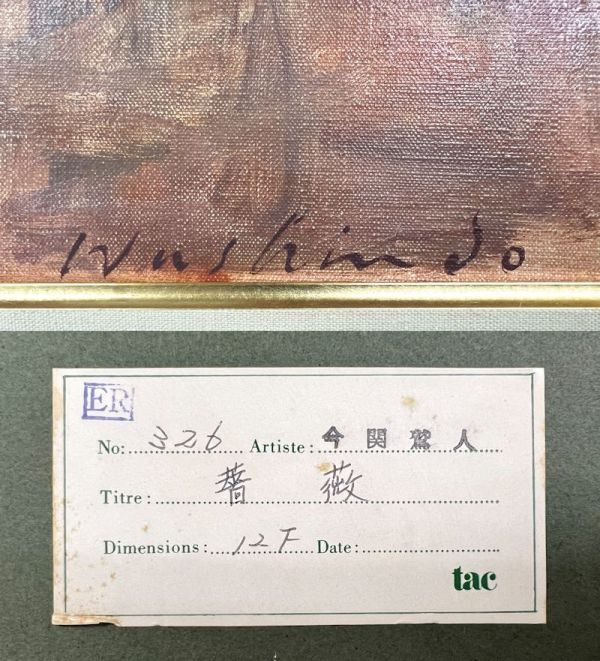 Washindo
ER
No: 326 Artiste: 今関鷲人
Titre: 薔薇
Dimensions: 12F Date:
tac